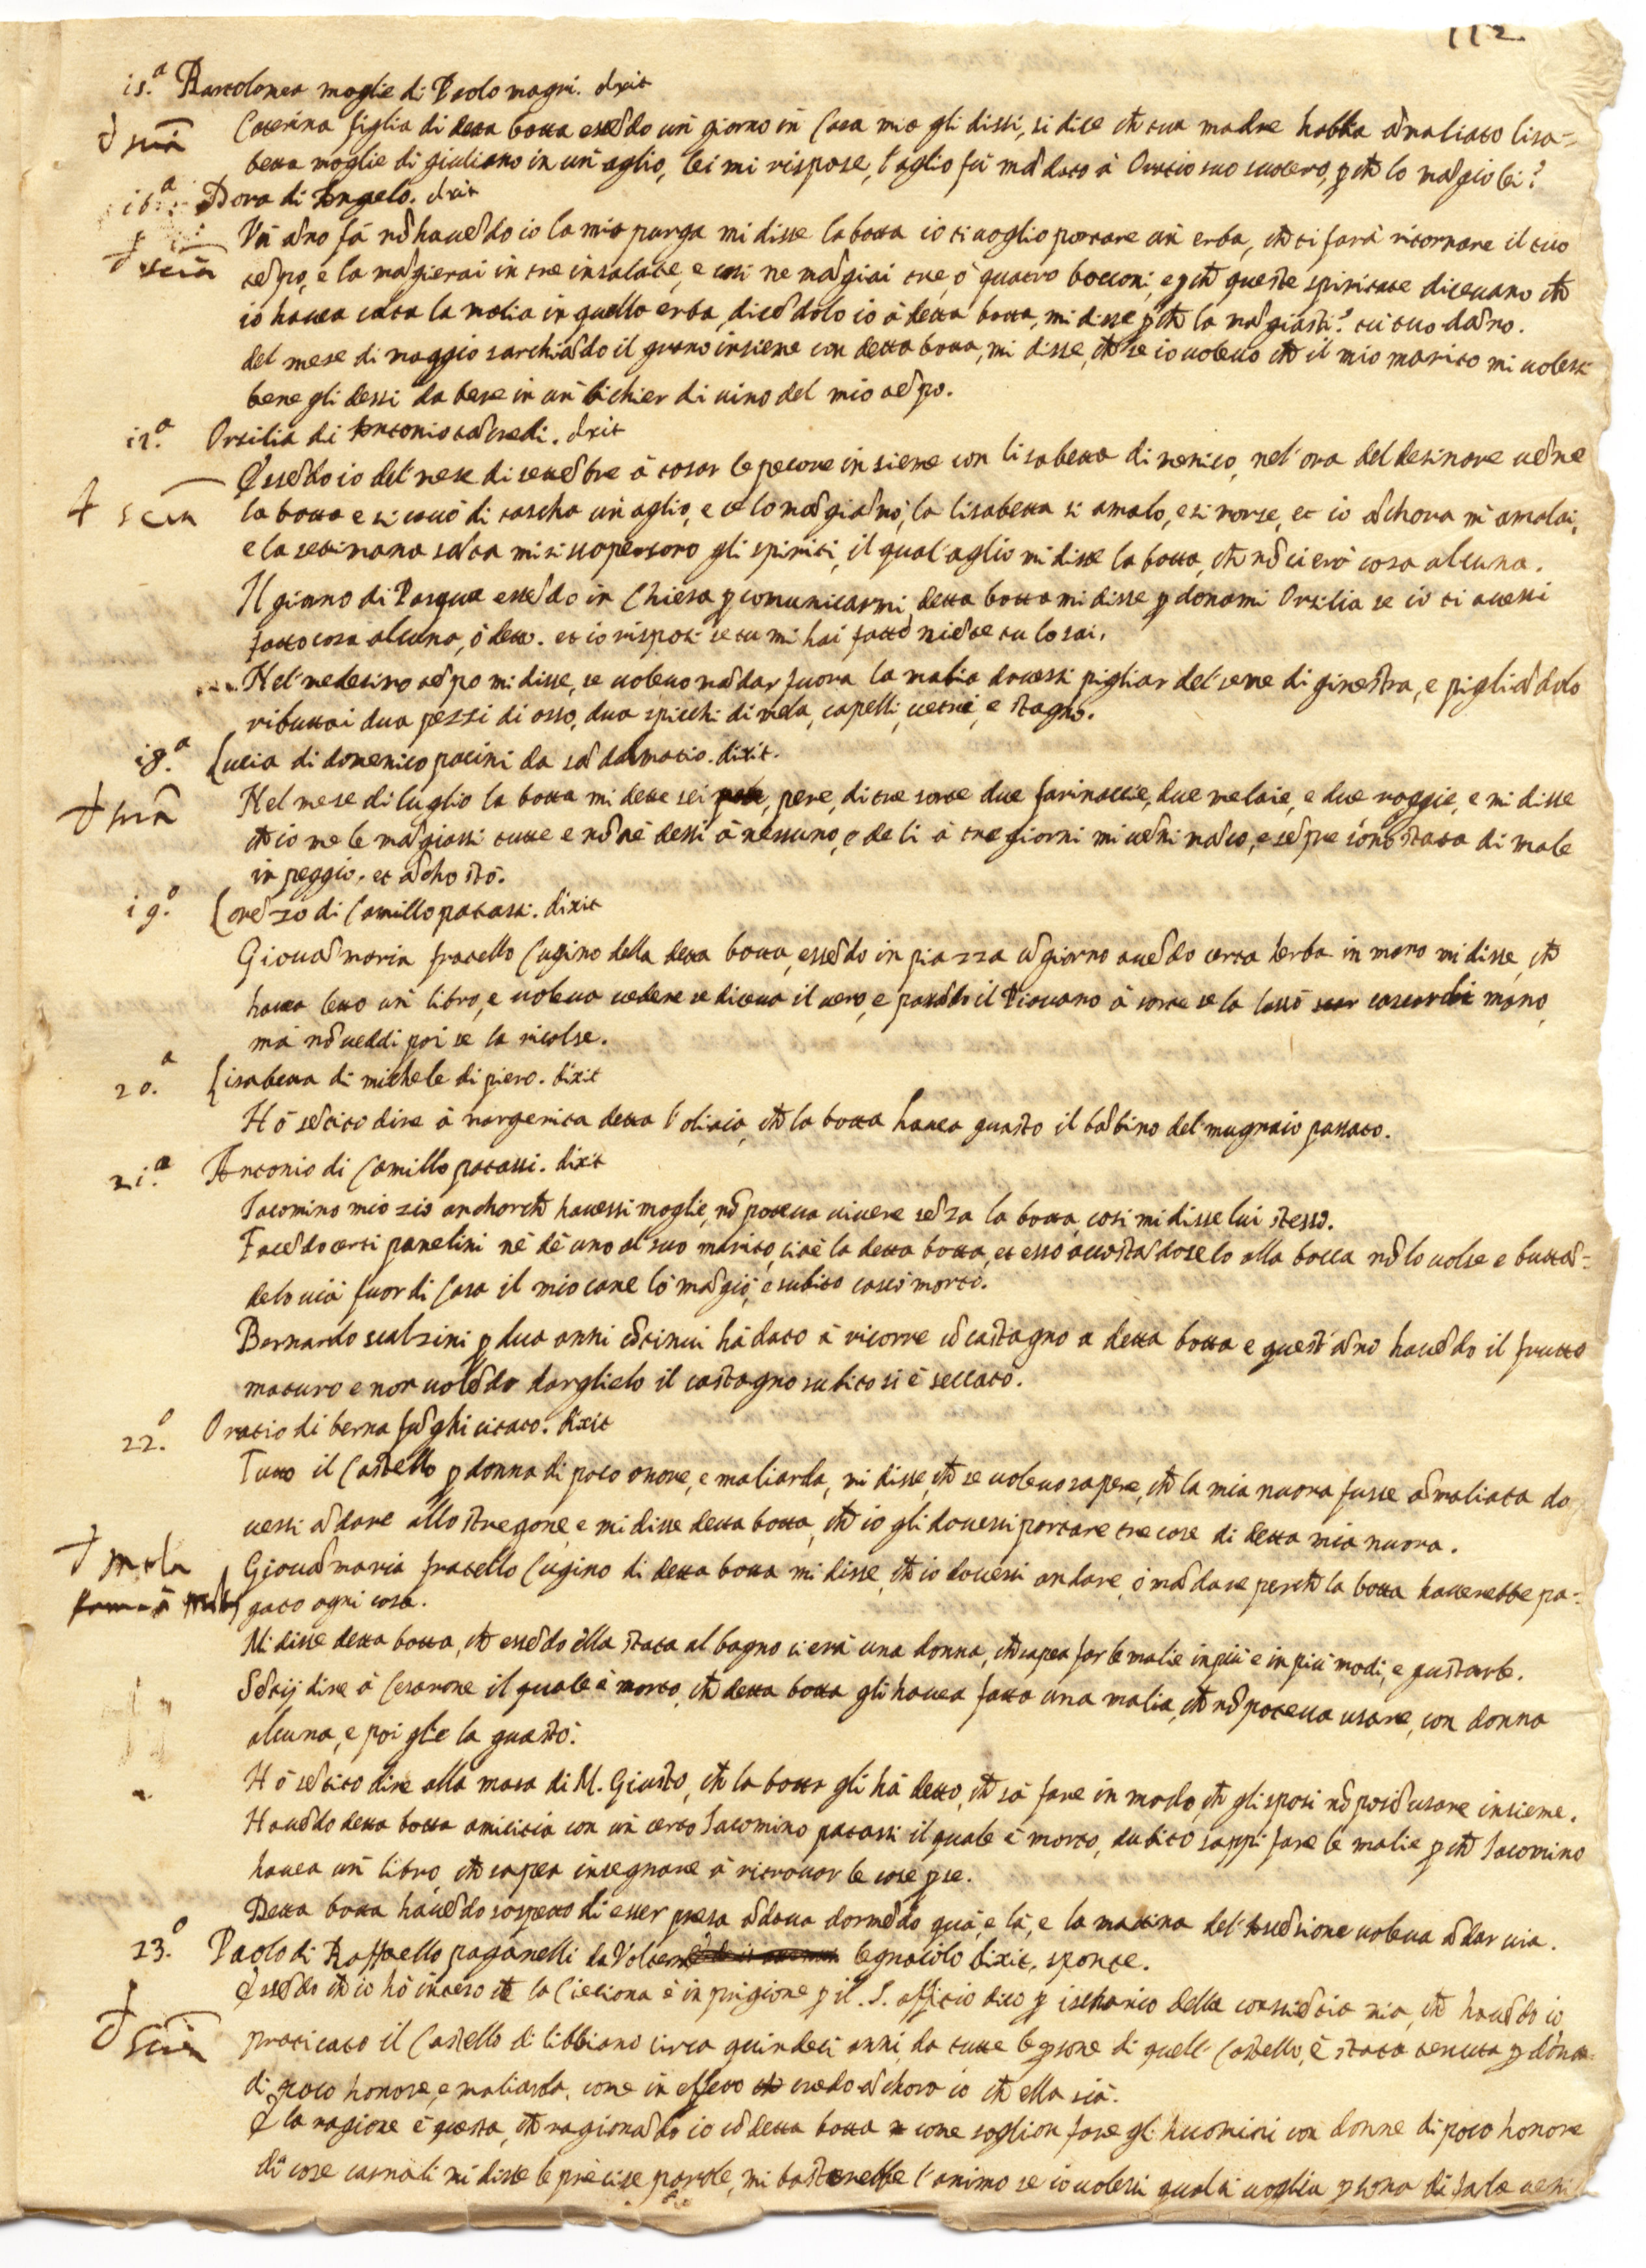 112
15.ª Bartolomea moglie di Paolo magni. dixit
Caterina figlia di detta botta essẽdo un giorno in Casa mia gli dissi, si dice ch̃ tua madre habbia amaliato lisa=
betta moglie di giuliano in un aglio, lei mi rispose, l'aglio fù mãdato à Oratio suo suocero, p̱ ch̃ lo mãgiò lei?
16.ª Dora di Angelo. dixit
Un ãno fà nõ havẽdo io la mia purga mi disse la botta io ti voglio portare un erba, ch̃ ti farà ritornare il tuo
tẽpo, e la mãgierai in tre insalate, e cosi ne mãgiai tre, ò quatro bocconi, e p̱ ch̃ queste spiritate dicevano ch̃
io havea hauta la malia in quella erba, dicẽdolo io à detta botta, mi disse p̱ ch̃ la mãgiasti? tuo dãno.
del mese di maggio sarchiãdo il grano insieme con detta botta, mi disse, ch̃ se io volevo ch̃ il mio marito mi volessi
bene gli dessi da bere in un bichier di vino del mio tẽpo.
17.ª Orsilia di Antonio tãcredi. dixit
Essẽdo io del mese di settẽbre à tosar le pecore insieme con lisabetta di menico, nel' ora del desinare vẽne
la botta e si cavò di tascha un aglio, e ce lo mãgiãmo, la lisabetta si amalò, e si morse, et io ãchora m'amalai,
e la settimana sãta mi si scopersero gli spiriti, il qual' aglio mi disse la botta, ch̃ nõ ci era cosa alcuna.
Il giorno di Pasqua essẽdo in Chiesa p̱ comunicarmi detta botta mi disse p̱donami Orsilia se io ti avessi
fatto cosa alcuna, ò detto. et io risposi se tu mi hai fatto niẽte tu lo sai.
Nel' medesimo tẽpo mi disse, se volevo mãdar fuora la malia dovessi pigliar del' seme di ginestra, e pigliãdolo
ributtai dua pezzi di osso, dua spicchi di mela, capelli, vetrie, e stagno.
18.ª Lucia di domenico pacini da sã dalmatio. dixit.
Nel mese di luglio la botta mi dette sei pere, di tre sorte due farinaccie, due melaie, e due roggie, e mi disse
ch̃ io me le mãgiassi tutte e nõ ne dessi à nessuno, e de li à tre giorni mi vẽni mãco, e sẽpre sono stata di male
in peggio. et ãcho stò.
19.º Lorẽzo di Camillo patassi. dixit
Giovãmaria fratello Cugino della detta botta, essẽdo in piazza ũ giorno avẽdo certa herba in mano mi disse, ch̃
havea letto un libro, e voleva vedere se diceva il vero, e passãdo il Piovano à sorte se la lassò cascar di mano,
ma nõ veddi poi se la ricolse.
20.ª Lisabetta di michele di piero. dixit
Hò sẽtito dire à margerita detta l'oliaia, ch̃ la botta havea guasto il bãbino del' mugnaio passato.
21.ª Antonio di Camillo patassi. dixit
Iacomino mio zio anchorch̃ havessi moglie, nõ poteva vivere sẽza la botta, cosi mi disse lui stesso.
Facẽdo certi panelini ne dè uno al' suo marito, cioè la detta botta, et esso accostãdoselo alla bocca nõ lo volse e buttã=
delo via fuor di Casa il mio cane lo mãgiò, e subito cascò morto.
Bernardo scalzini p̱ dua anni cõtinui hà dato à ricorre ũ castagno a detta botta e quest' ãno havẽdo il frutto
maturo e non volẽdo darglielo il castagno subito si è seccato.
22.º Oratio di berna fũghi citato. dixit
Tutto il Castello p̱ donna di poco onore, e maliarda, mi disse, ch̃ se volevo sapere, ch̃ la mia nuora fusse amaliata do
vessi ãdare allo stregone, e mi disse detta botta, ch̃ io gli dovessi portare tre cose di detta mia nuora.
Giovãmaria fratello Cugino di detta botta mi disse, ch̃ io dovessi andare, ò mãdare perch̃ la botta haverebbe pa=
gato ogni cosa.
Mi disse detta botta, ch̃ essẽdo ella stata al bagno ci era una donna, ch̃ sapea far le malie in più e in più modi, e guastarle.
Sẽtij dire à Cesarone il quale è morto, ch̃ detta botta gli havea fatta una malia, ch̃ nõ poteva usare, con donna
alcuna, e poi glie la guastò.
Hò sẽtito dire alla masa di M. Giusto, ch̃ la botta gli hà detto, ch̃ sà fare in modo, ch̃ gli sposi nõ posiõ usare insieme.
Havẽdo detta botta amicitia con un certo Iacomino patassi il quale è morto, dubito sappi fare le malie p̱ ch̃ Iacomino
havea un libro, ch̃ sapea insegnare à ritrovar le cose p̱se.
Detta botta havẽdo sospetto di esser presa ãdava dormẽdo quà, e là, e la mattina del' voleva ãdar via.
23.º Paolo di Raffaello paganelli da Volterra legnaiolo dixit. sponte.
Essẽdo ch̃ io hò inteso ch̃ la Cieciona è in prigione p̱ il S. offitio dico p̱ ischarico della consciẽtia mia, ch̃ havẽdo io
praticato il Castello di libbiano circa quindeci anni, da tutte le p̱sone di quell' Castello, è stata tenuta p̱ dõna
di poco honore, e maliarda, come in effetto credo ãchora io ch̃ ella sia.
E la ragione è questa, ch̃ ragionãdo io cõ detta botta come soglion fare gli huomini con donne di poco honore
di cose carnali mi disse le precise parole, mi basterebbe l'animo se io volessi qual si voglia p̱sona di farla veni